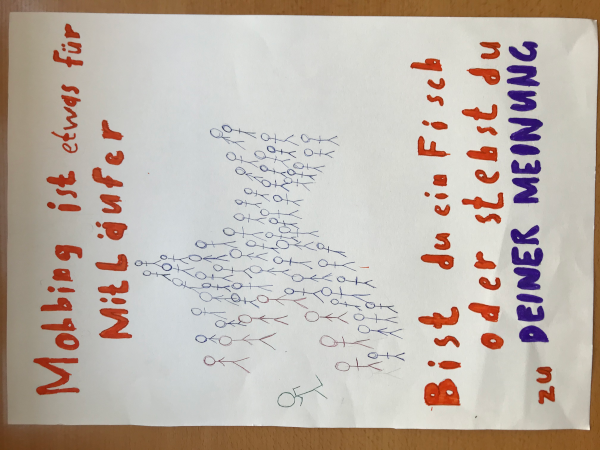 Mobbing ist etwas für
Mitläufer
Bist du ein Fisch
oder stehst du
zu DEINER MEINUNG